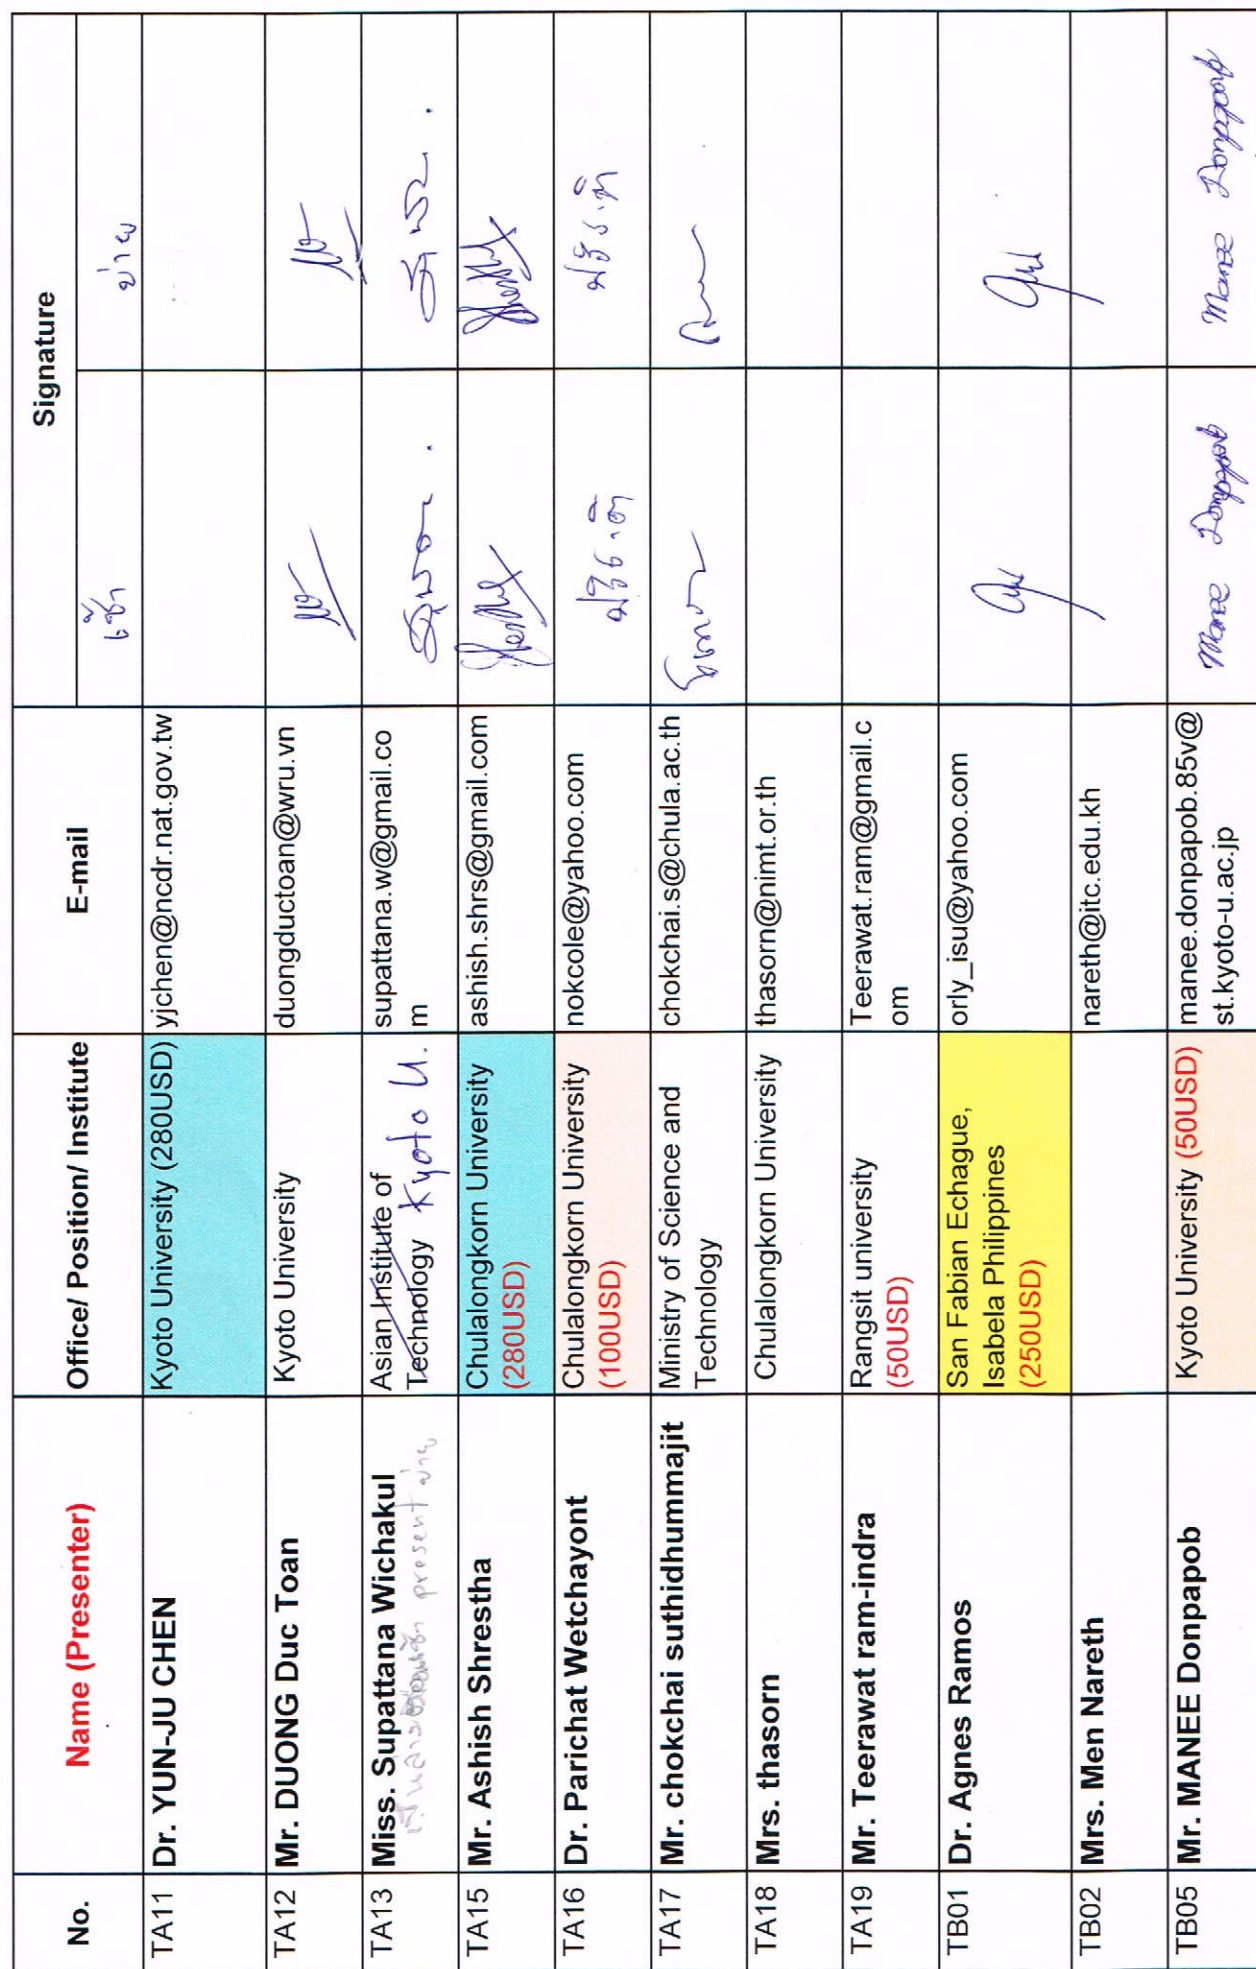 No.
Name (Presenter)
Office/ Position/ Institute
E-mail
Signature
เช้า
บ่าย
TA11
Dr. YUN-JU CHEN
Kyoto University (280USD)
yjchen@ncdr.nat.gov.tw
TA12
Mr. DUONG Duc Toan
Kyoto University
duongductoan@wru.vn
TA13
Miss. Supattana Wichakul
present บ่าย
Asian Institute of
Technology Kyoto U.
supattana.w@gmail.co
m
TA15
Mr. Ashish Shrestha
Chulalongkorn University
(280USD)
ashish.shrs@gmail.com
TA16
Dr. Parichat Wetchayont
Chulalongkorn University
(100USD)
nokcole@yahoo.com
TA17
Mr. chokchai suthidhummajit
Ministry of Science and
Technology
chokchai.s@chula.ac.th
TA18
Mrs. thasorn
Chulalongkorn University
thasorn@nimt.or.th
TA19
Mr. Teerawat ram-indra
Rangsit university
(50USD)
Teerawat.ram@gmail.c
om
TB01
Dr. Agnes Ramos
San Fabian Echague,
Isabela Philippines
(250USD)
orly_isu@yahoo.com
TB02
Mrs. Men Nareth
nareth@itc.edu.kh
TB05
Mr. MANEE Donpapob
Kyoto University (50USD)
manee.donpapob.85v@
st.kyoto-u.ac.jp
Manee Donpapob
Manee Donpapob